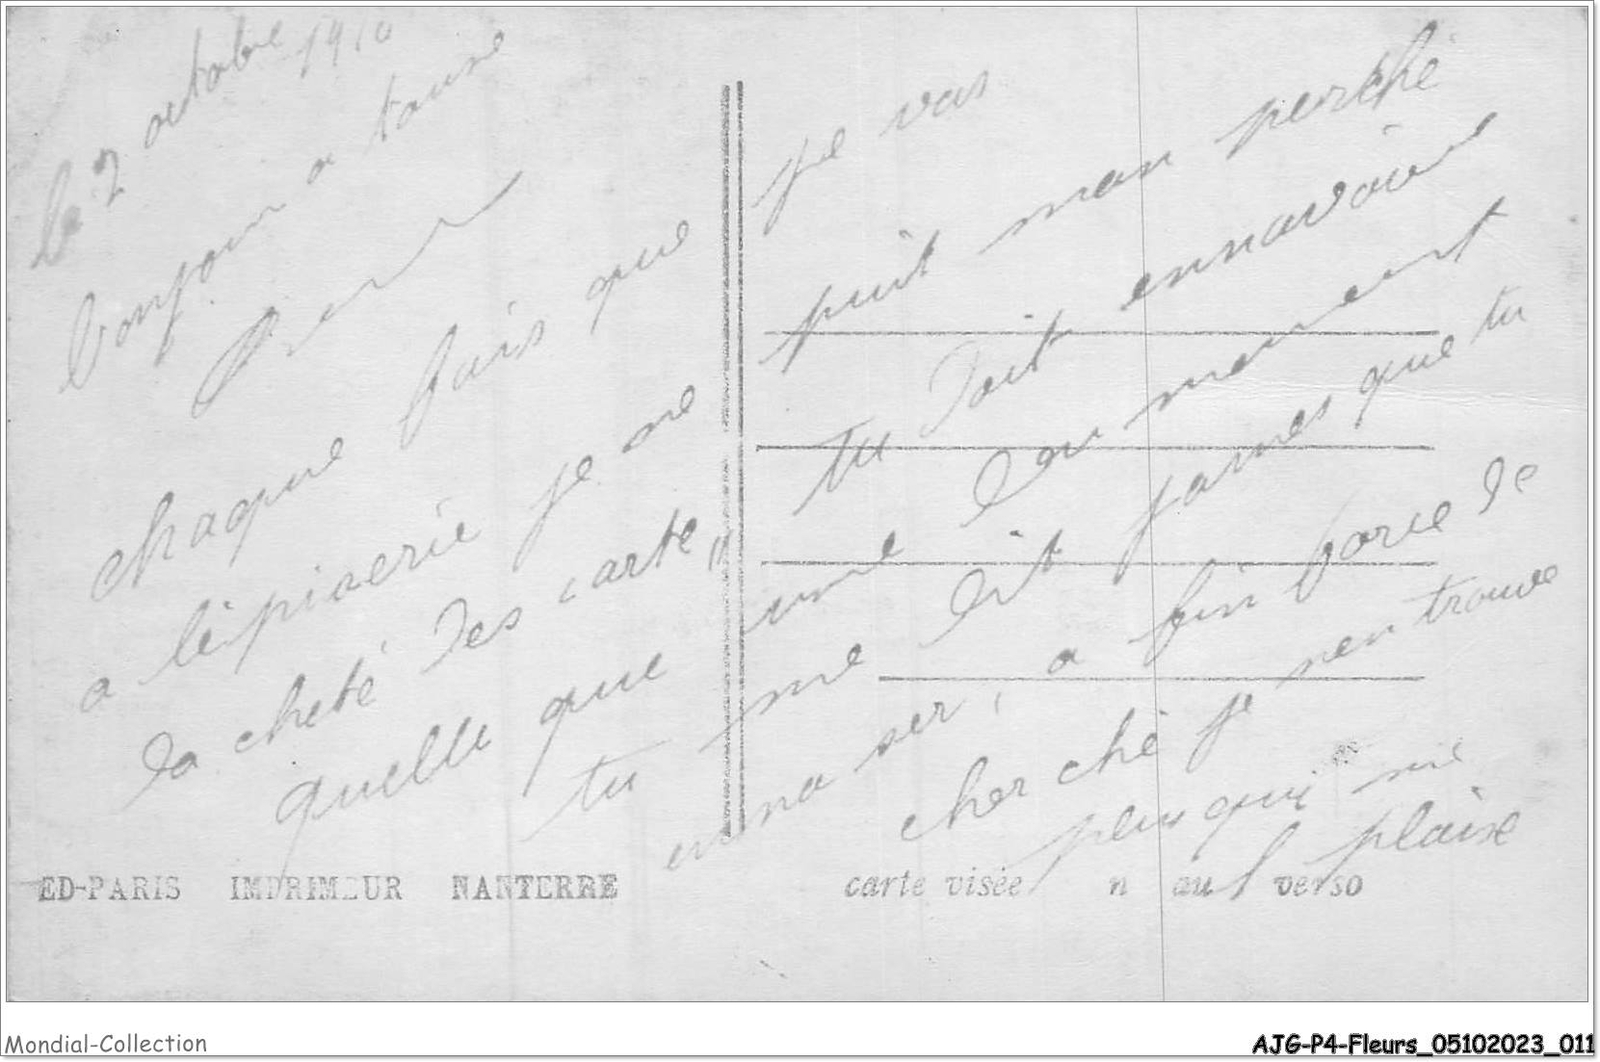 le 2 octobre 1910
bonjour a tousse
René
chaque fais que
a lépiserie je me
la cheté des carte,
quelle que
tu
je vas
puit man perché
tu doit ennavoire
une lou moment
me dit james que tu
enna ser, a fin force de
cherché je nen trouve
plus qui me
plaise
ED-PARIS IMPRIMEUR NANTERRE
carte visée n au verso
Mondial-Collection
AJG-P4-Fleurs_05102023_011